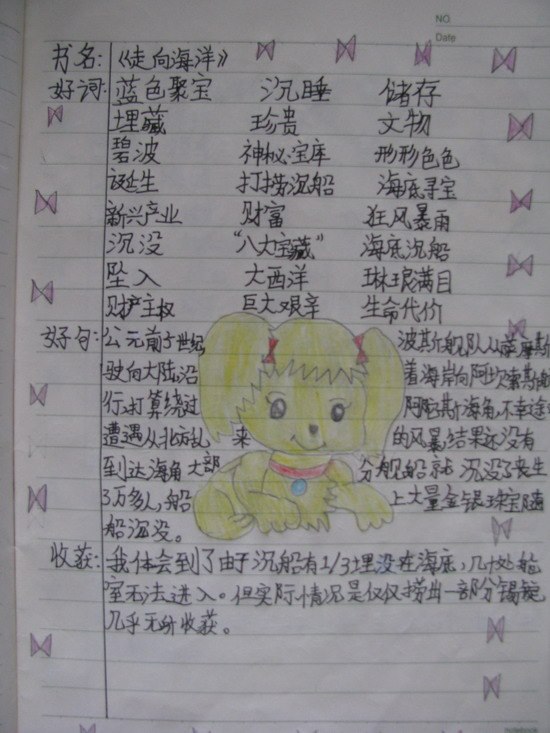 NO
Date
书名:《走向海洋》
好词: 蓝色聚宝 沉睡 储存
埋藏 珍贵 文物
碧波 神秘宝库 形形色色
诞生 打捞沉船 海底寻宝
新兴产业 财富 狂风暴雨
沉没 “八大宝藏” 海底沉船
坠入 大西洋 琳琅满目
财产主权 巨大艰辛 生命代价
好句: 公元前5世纪 波斯舰队从萨摩斯
驶向大陆,沿 着海岸向阿坎
行,打算绕过 斯海角,不幸途
遭遇从北方乱 来 的风暴,结果还没有
到达海角大部 分舰船就沉没了丧生
3万多人,船 上大量金银珠宝随
船沉没。
收获: 我体会到了由于沉船有1/3埋没在海底,几十处舱
室无法进入。但实际情况是仅仅捞出一部分锡锭
几乎无所收获。